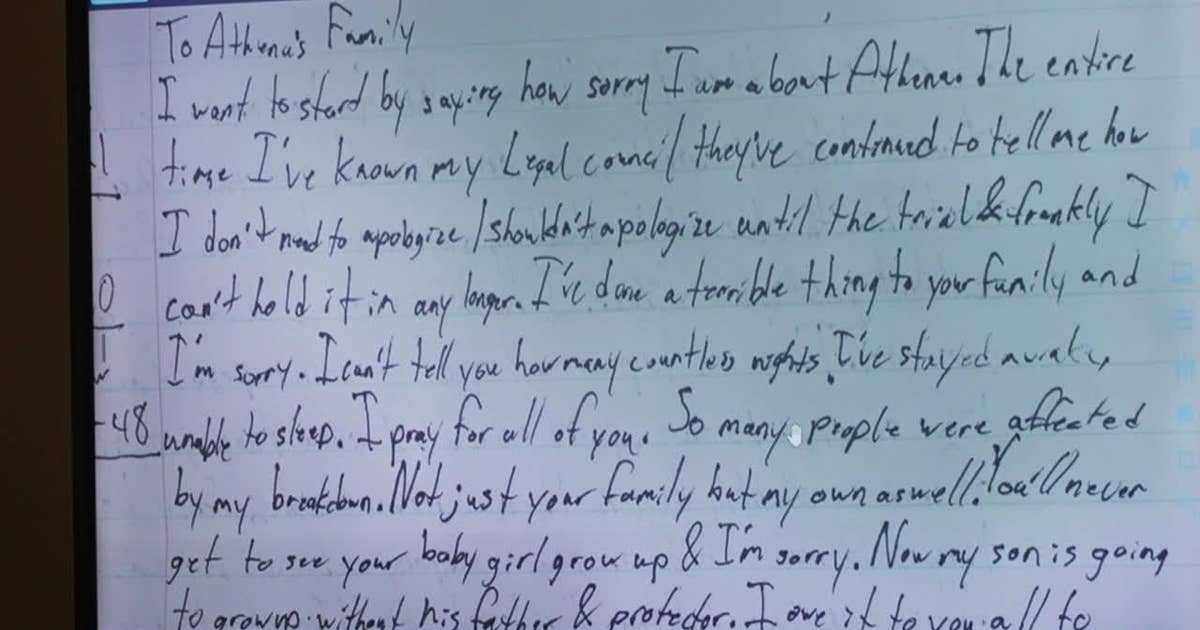 To Athena's Family
I want to start by saying how sorry I am about Athena. The entire
time I've known my Legal council they've continued to tell me how
I don't need to apologize/shouldn't apologize until the trial & frankly I
can't hold it in any longer. I've done a terrible thing to your family and
I'm sorry. I can't tell you how many countless nights I've stayed awake,
unable to sleep. I pray for all of you. So many people were affected
by my breakdown. Not just your family but my own aswell. You'll never
get to see your baby girl grow up & I'm sorry. Now my son is going
to grow up without his father & protector. I owe it to you all to
-48